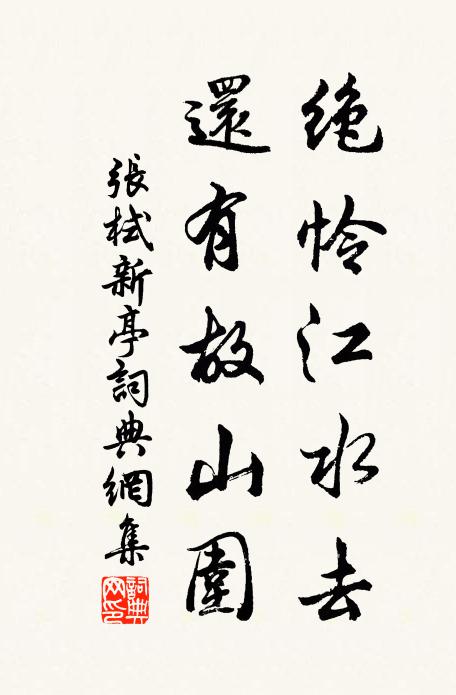 絶怜江水去
還有故山圍
張栻新亭詞典網集
詞典網印